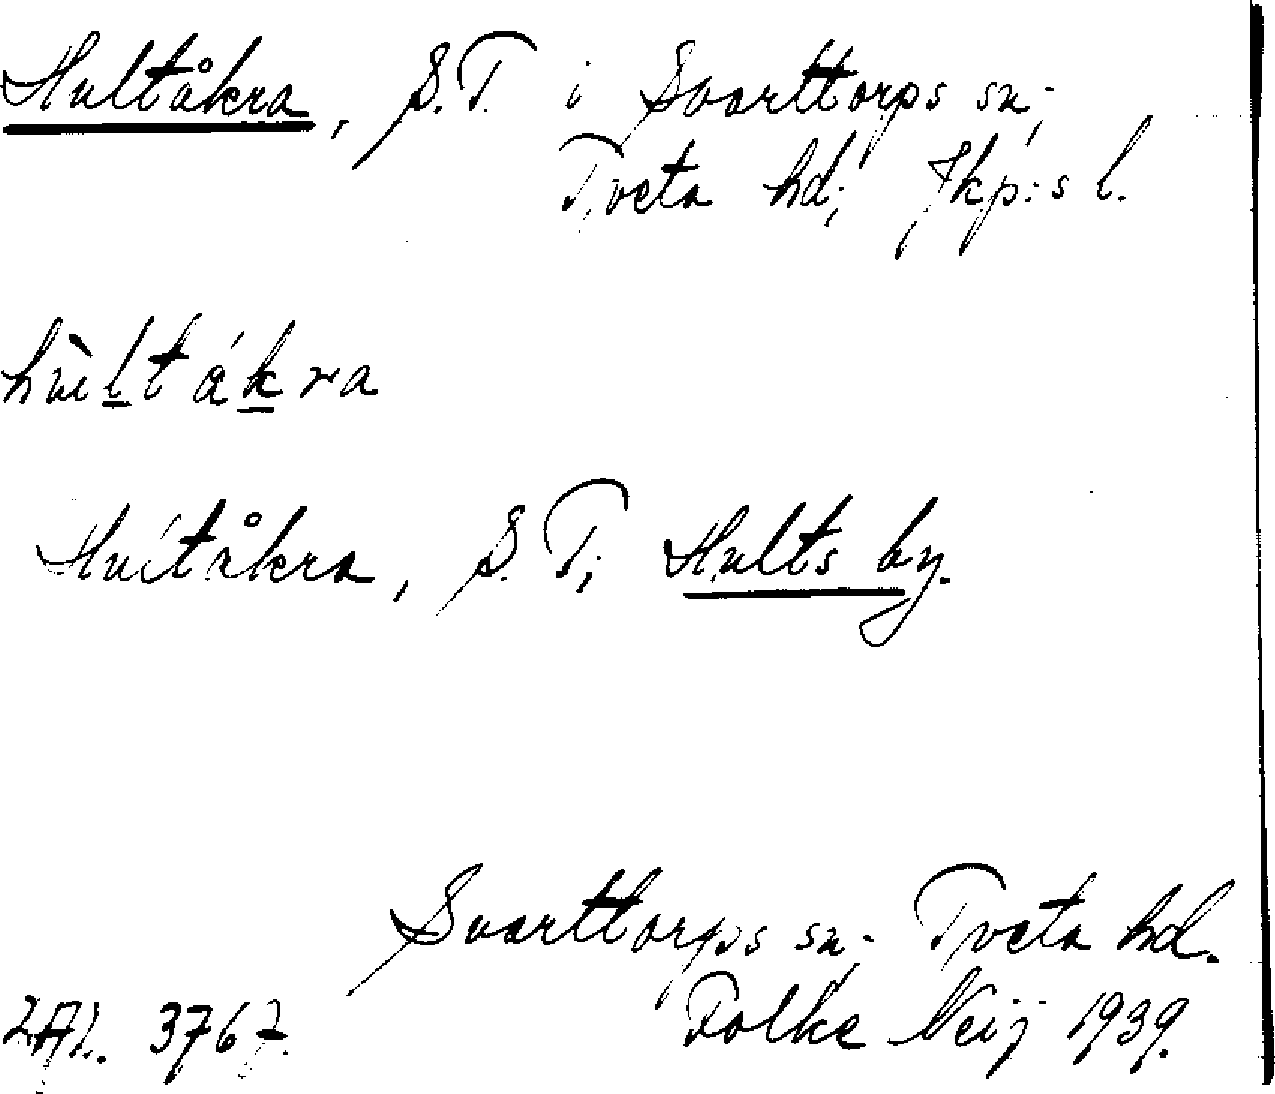 Hultåkra, S.T. i Svarttorps sn;
Tveta hd; Jkp:s l.
hùltákra
Hultåkra, S.T; Hults by.
Svarttorps sn; Tveta hd.
3767. Folke Neij 1939.